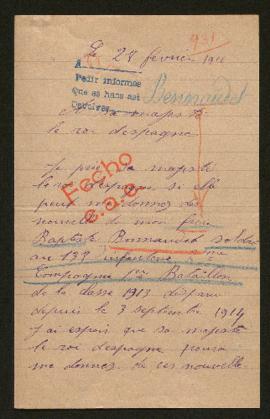 Le 28 février 191
931
A
Pedir informes
Que se haga est
Bermandel
A sa majesté
le roi despagne
Je prie sa majeste
le roi despagne si elle
peut me donner des
nouvelle de mon frère
Fecho
Baptiste soldat
au 139 infanterie me
Compagnie 1er Bataillon
de la classe 1913 disparu
depuis le 3 septembre 1914
J'ai espoir que sa majesté
le roi despagne pourra
me donner de ces nouvelle